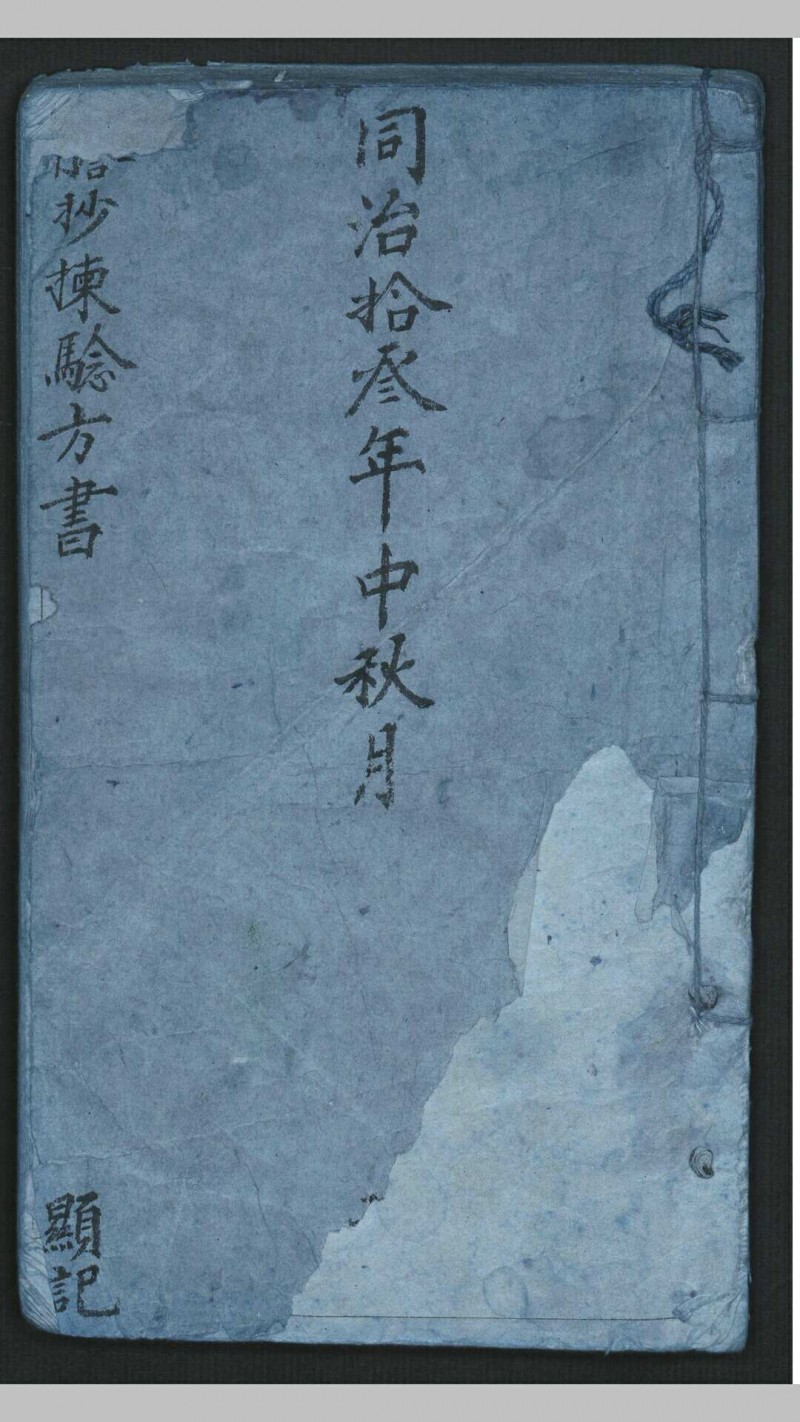 同治拾叄年中秋月
抄揀騐方書
顯記